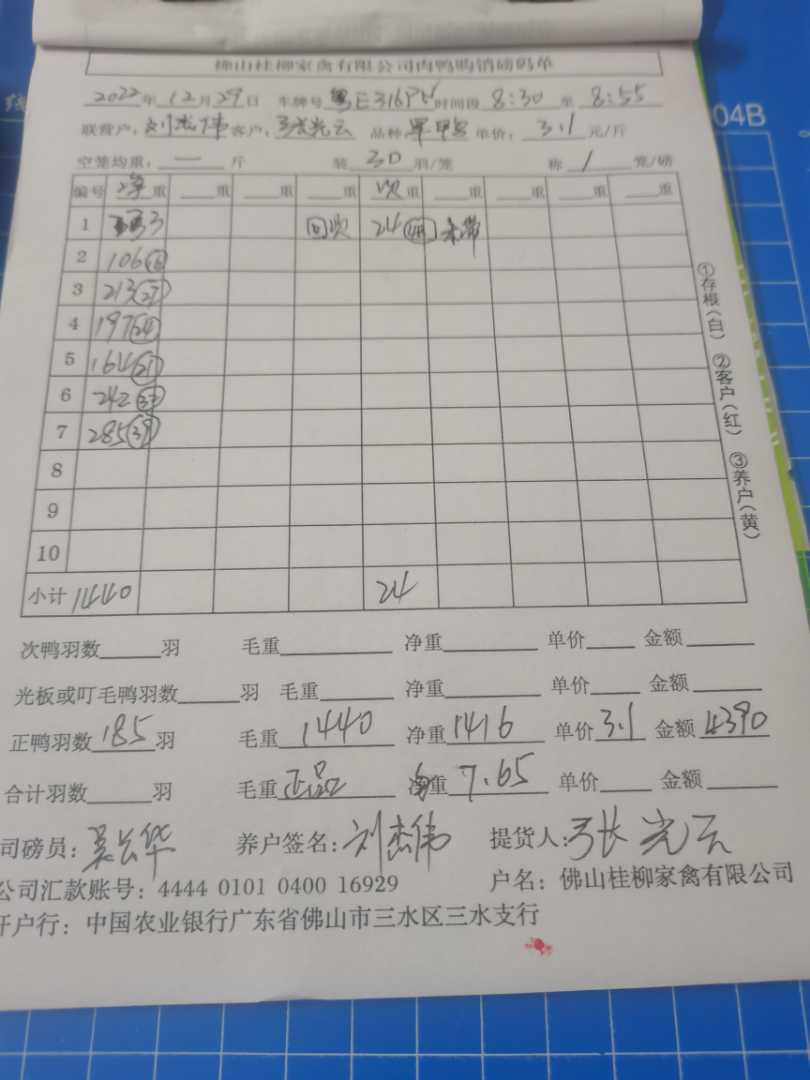 佛山桂柳家禽有限公司肉鸭购销磅码单
2022年12月29日 车牌号 粤E316 时间段 8:30 至 8:55
联营户:刘杰伟 客户:张光云 品种 单价:3.1元/斤
空笼均重:一斤 装30羽/笼 称1笼/磅
编号 净重 重 重 重 次重 重 重 重 重
1 3 回次 24 未带
2 106
3 213(27)
4 197(24)
5 164(21)
6 242
7 285(39)
8
9
10
小计 1440 24
次鸭羽数 羽 毛重 净重 单价 金额
光板或叮毛鸭羽数 羽 毛重 净重 单价 金额
正鸭羽数185羽 毛重1440 净重1416 单价3.1 金额4390
合计羽数 羽 毛重正品 重7.65 单价 金额
司磅员: 养户签名:刘杰伟 提货人:张光云
公司汇款账号:4444 0101 0400 16929 户名:佛山桂柳家禽有限公司
开户行:中国农业银行广东省佛山市三水区三水支行
①存根(白) ②客户(红) ③养户(黄)
04B